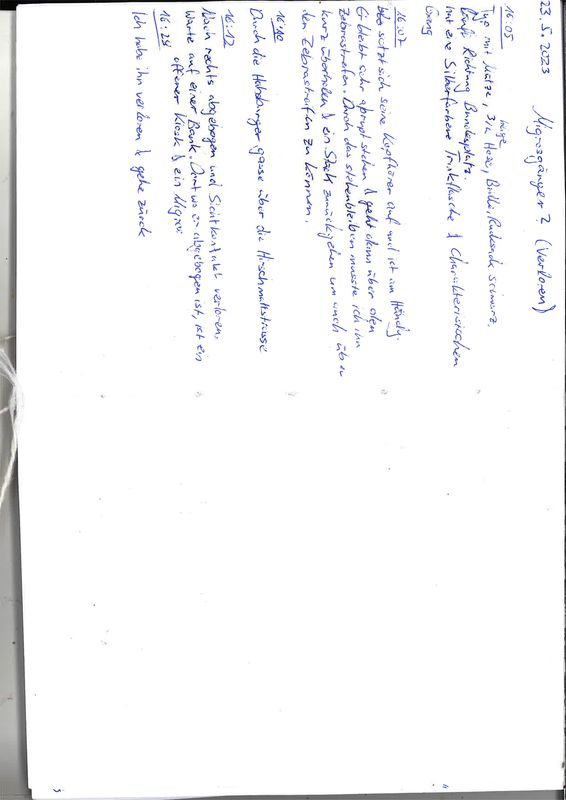 23.5.2023 Migrosgänger 2 (verloren)
16:05
Typ mit Mütze, 3/4 lange Hose, Brille, Rucksack schwarz,
läuft Richtung Bundesplatz.
hat eine Silberfarbene Trinkflasche & Charakterisischen
Gang
16:07
setzt sich seine Kopfhörer auf und ist am Händy.
Er bleibt sehr abrupt stehen & geht dann über den
Zebrastreifen. Durch das stehenbleiben musste ich ihn
kurz überholen & ein Stück zurückgehen um auch über
den Zebrastreifen zu können.
16:10
Durch die Habsburger gasse über die Hirschmattstrasse
16:12
Nach rechts abgebogen und Sichtkontakt verloren,
Warte auf einer Bank. Dort wo er abgebogen ist, ist ein
offener Kiosk & ein Migros
16:28
Ich habe ihn verloren & gehe zurück